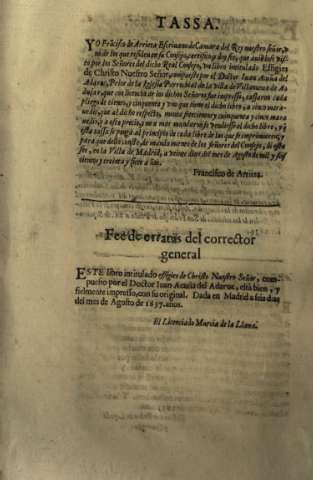 TASSA.
YO Frãcisco de Arrieta Escriuano de Camara del Rey nuestro señor, y
vno de los que residen en su Consejo, certifico, y doy fee, que auiẽdose visto
por los Señores del dicho Real Consejo, vn libro intitulado Effigies
de Christo Nuestro Señor, compuesto por el Doctor Iuan Acuña del
Adarue, Prior de la Iglesia Parrochial de la Villa de Villanueua de An-
dujar, que con licencia de los dichos Señores fue impresso, tassaron cada
pliego de a cinco, y cinquenta y vno que tiene el dicho libro, a cinco mara-
uedis, que al dicho respeto, monta
uedis; y a este precio, y no a mas mandaron se vendiesse el dicho libro, y q̃
esta tassa se ponga al principio de cada libro de los que se imprimieren; y
para que dello conste, de mandamiento de los señores del Consejo, di esta
fee, en la Villa de Madrid, a veinte dias del mes de Agosto de mil y seis
cientos y treinta y siete años.
Francisco de Arrieta.
Fee de erratas del corrector
general
ESTE libro intitulado effigies de Christo Nuestro Señor, com-
puesto por el Doctor Iuan Acuña del Adarue, està bien, y
fielmente impresso, con su original. Dada en Madrid a seis dias
del mes de Agosto de 1637. años.
El Licenciado Murcia de la Llana.